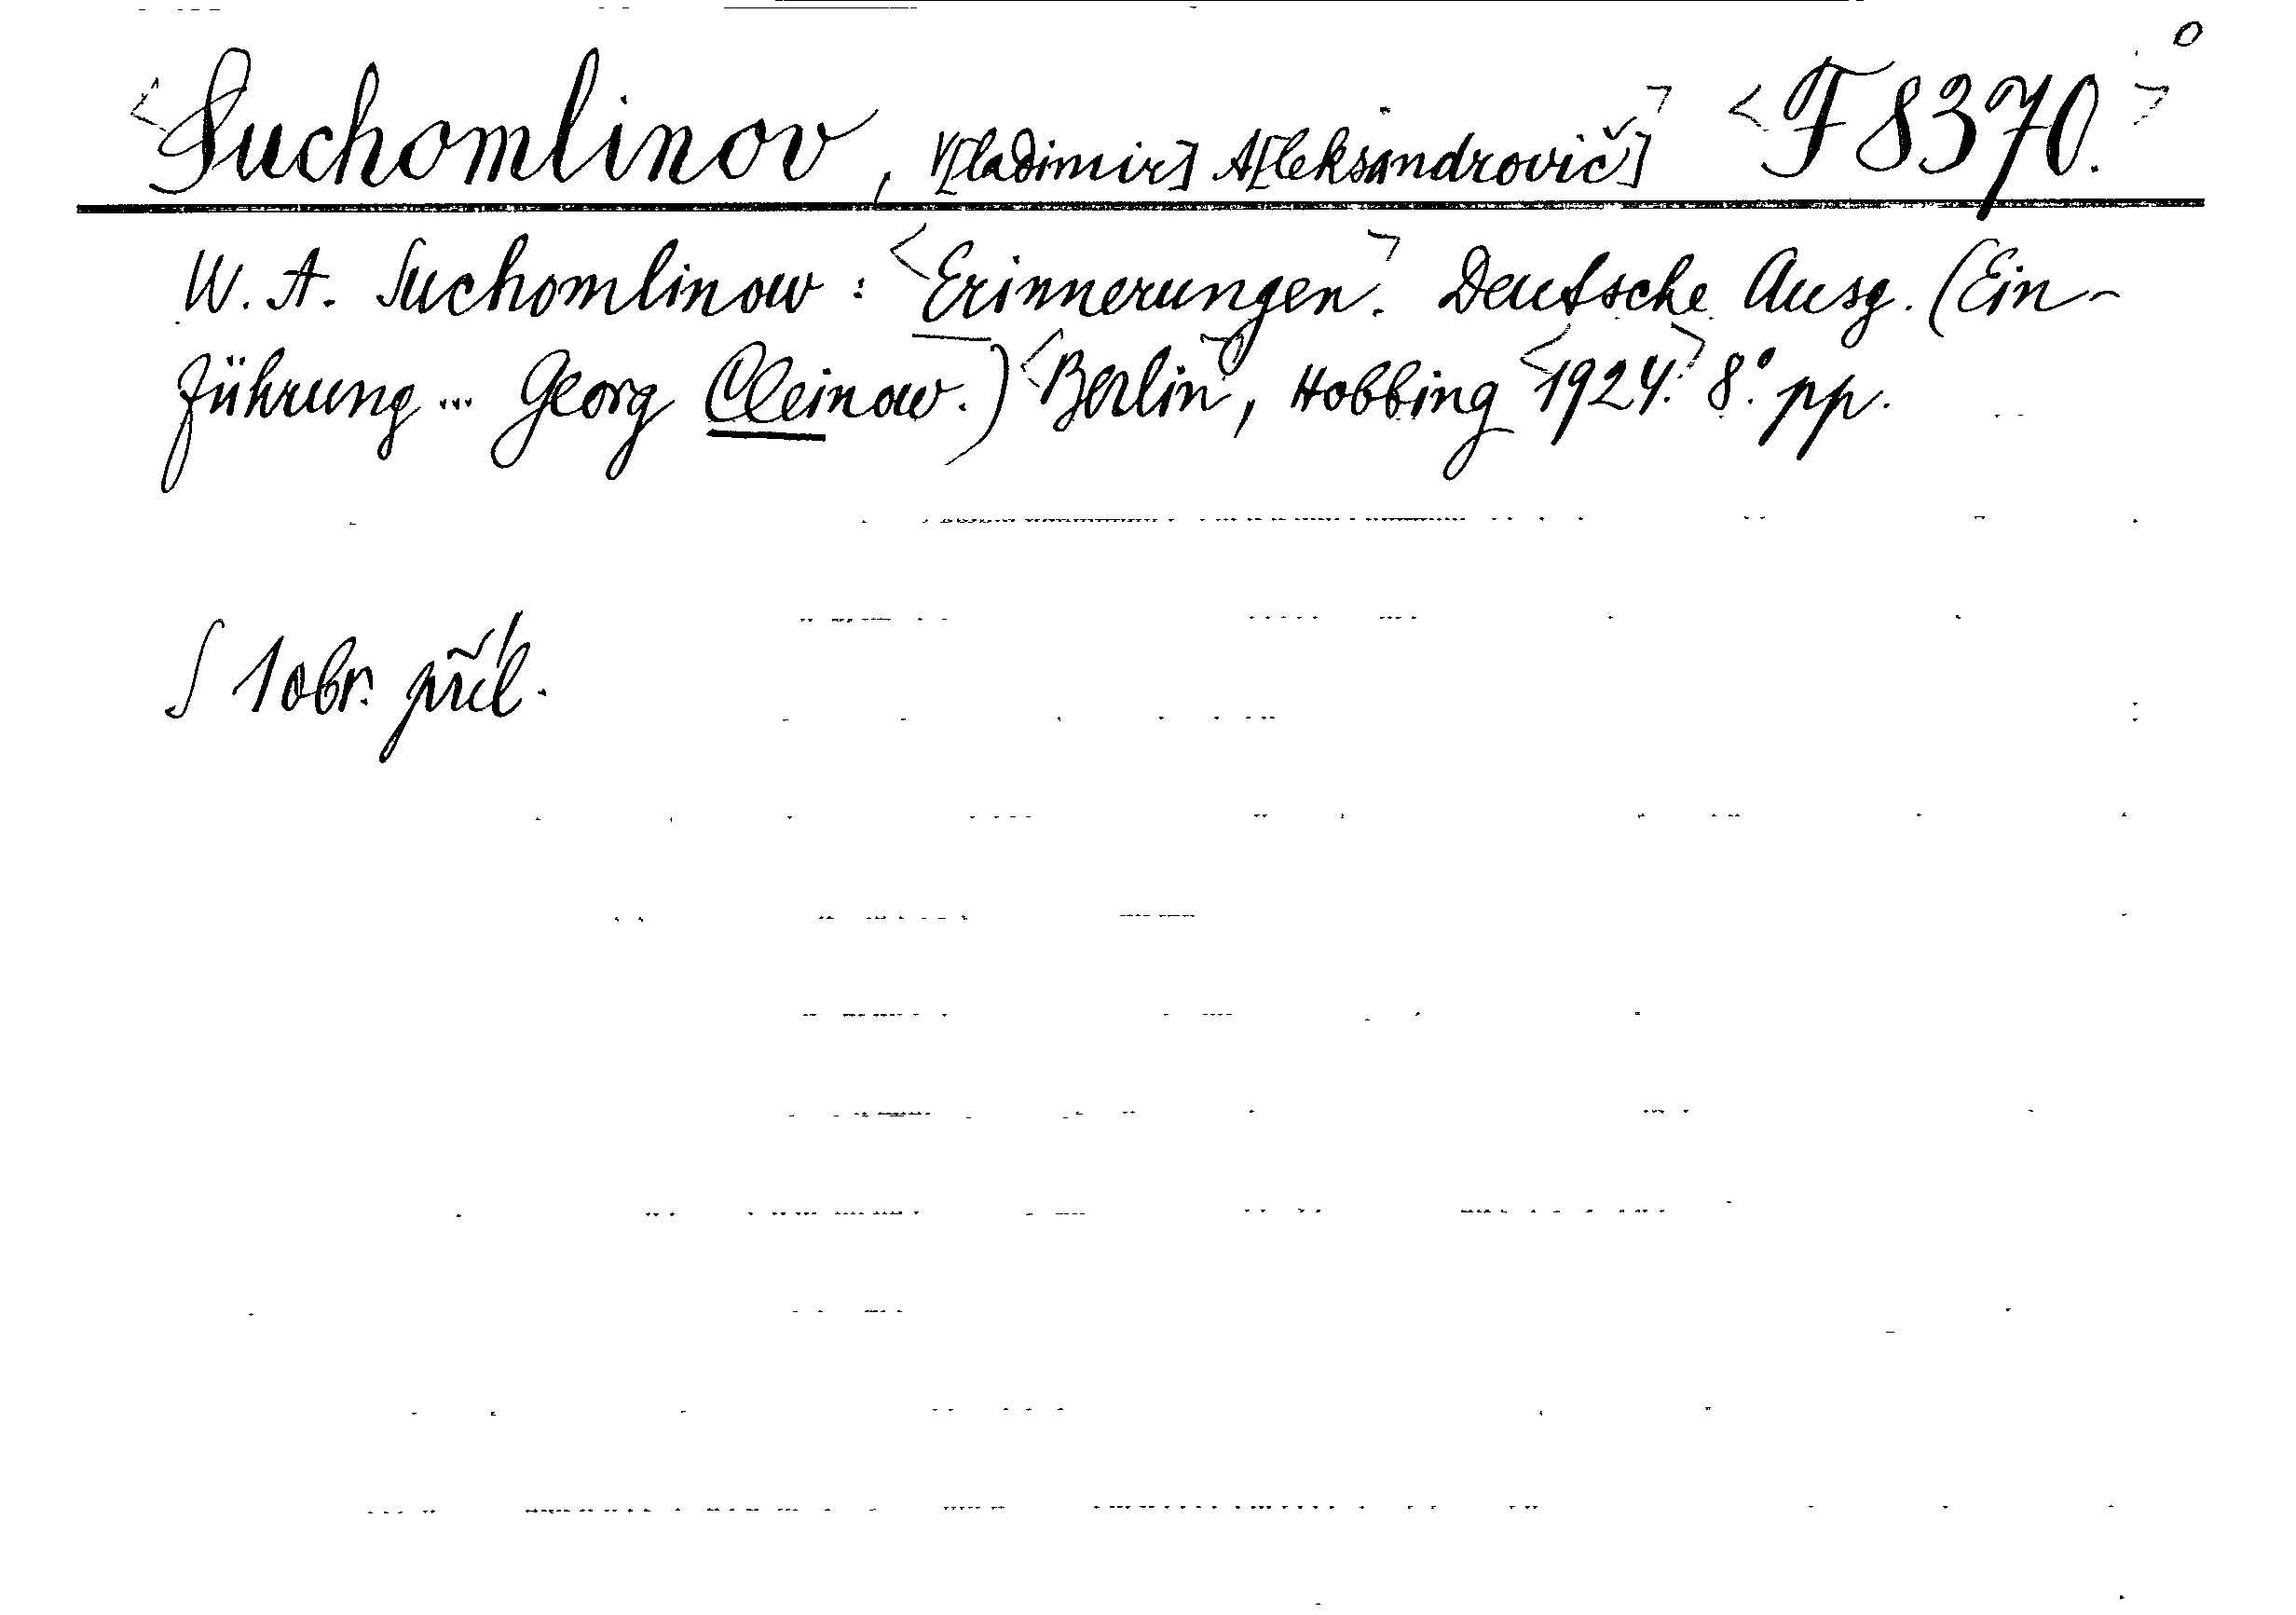 <Suchomlinov, V[ladimir] A[leksandrovič]> <F 8370.>
W. A. Suchomlinow: <Erinnerungen.> Deutsche Ausg. (Ein-
führung... Georg Cleinow.) <Berlin>, Hobbing <1924.> 8°. pp.
S 1 obr. příl.